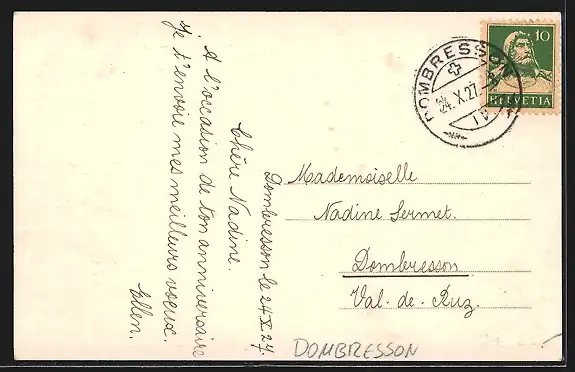 Dombresson le 24 X 27.
Chère Nadine.
A l'occasion de ton anniversaire
je t'envoie mes meilleurs voeux.
Ellen.
DOMBRESSON
24.X.27
10
HELVETIA
Mademoiselle
Nadine Sermet.
Dombresson
Val-de-Ruz.
DOMBRESSON